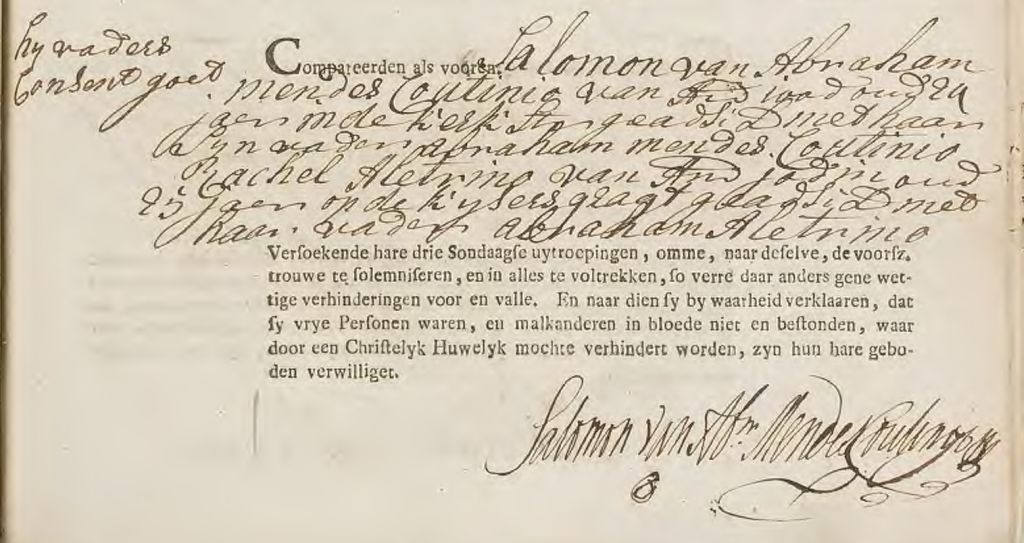 hy vaders
Consent goet
Compareerden als vooren, Salomon van Abraham
mendes Coutinio van Amd jood oud 24
jaer in de kerk str geads: D met haar
Syn vader abraham mendes Coutinio
Rachel Aletrino van Amd jodin oud
25 jaer op de kysersgragt geads: D met
haar vader abraham Aletrino
Verſoekende hare drie Sondaagſe uytroepingen, omme, naar deſelve, de voorſz.
trouwe te ſolemniſeren, en in alles te voltrekken, ſo verre daar anders gene wet-
tige verhinderingen voor en valle. En naar dien ſy by waarheid verklaaren, dat
ſy vrye Perſonen waren, en malkanderen in bloede niet en beſtonden, waar
door een Chriſtelyk Huwelyk mochte verhindert worden, zyn hun hare gebo-
den verwilliget.
Salomon van Abm Mendes Coutinho